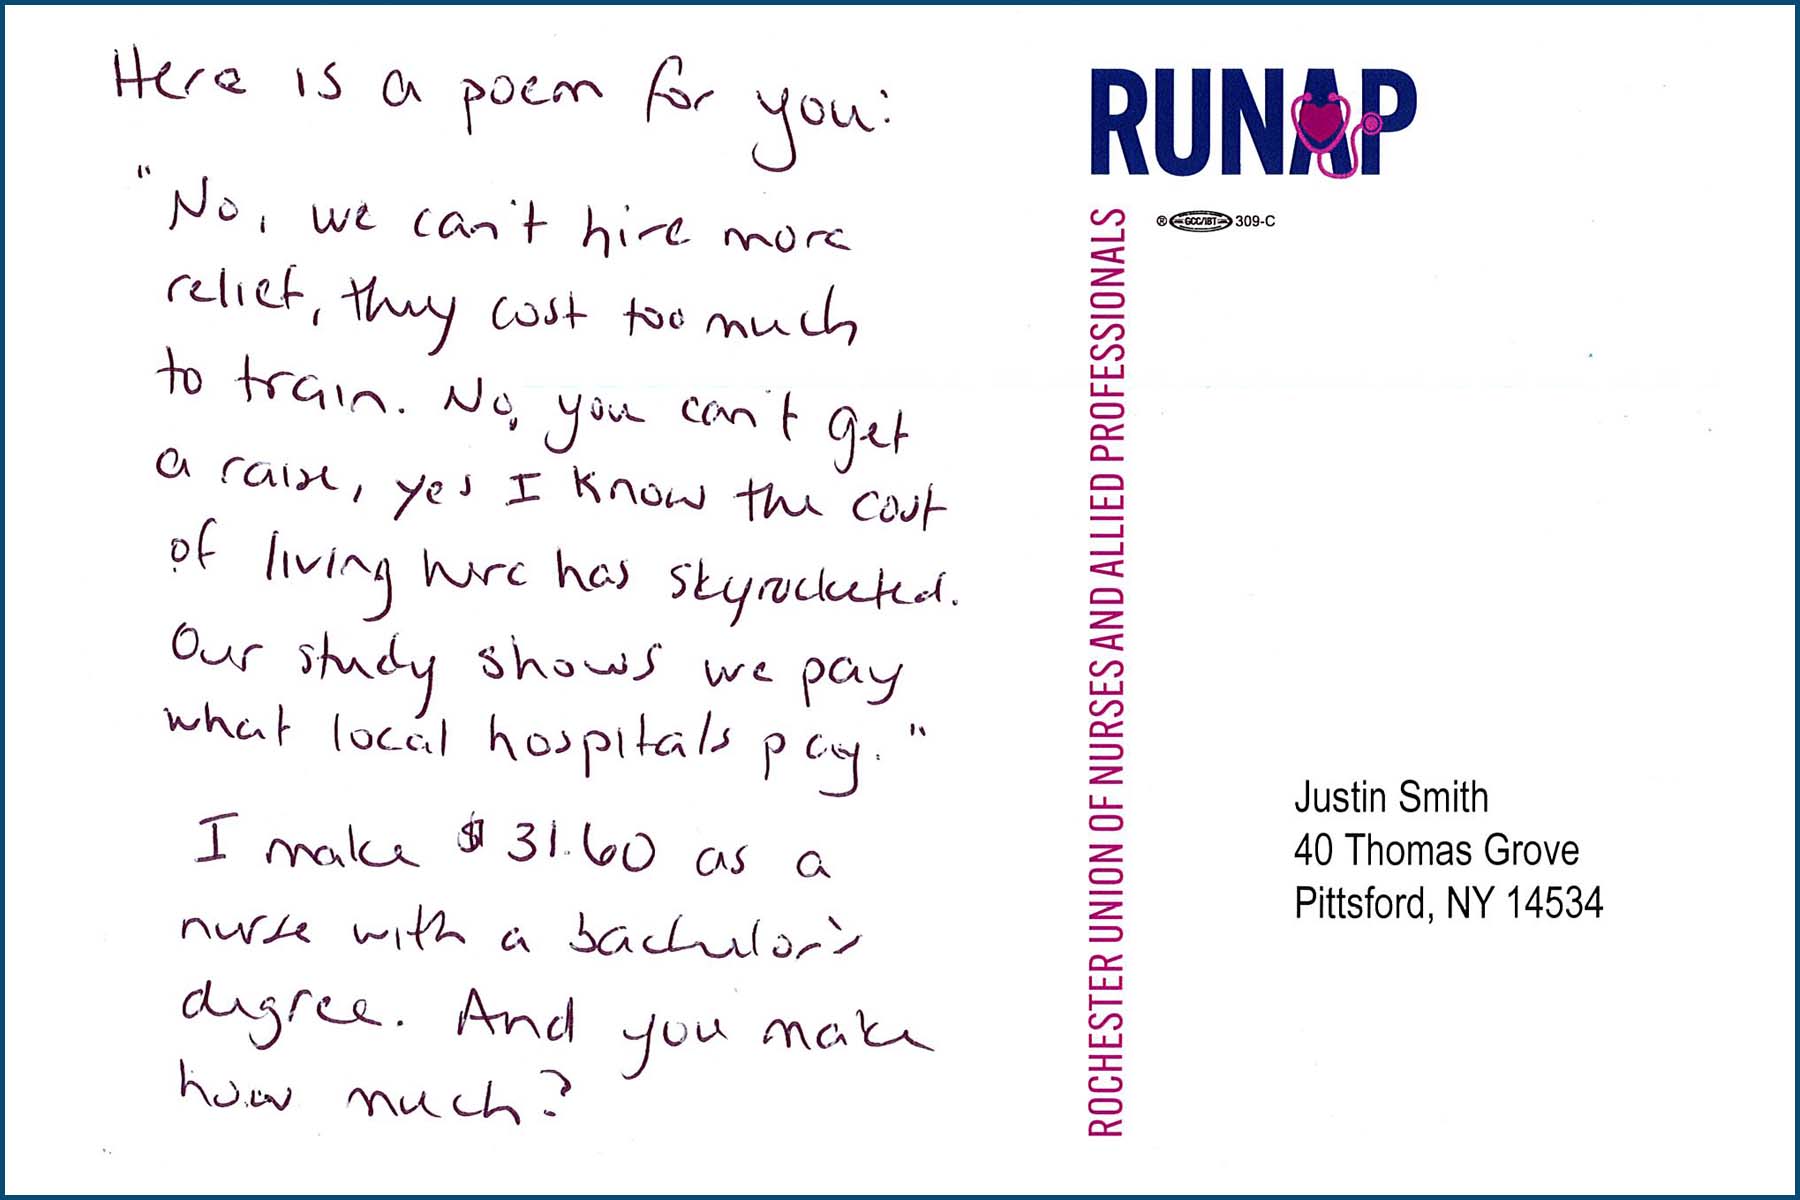 Here is a poem for you:
"No, we can't hire more
relief, they cost too much
to train. No, you can't get
a raise, yes I know the cost
of living here has skyrocketed.
Our study shows we pay
what local hospitals pay."
I make $31.60 as a
nurse with a bachelor's
degree. And you make
how much?
RUNAP
® GCC/IBT 309-C
ROCHESTER UNION OF NURSES AND ALLIED PROFESSIONALS
Justin Smith
40 Thomas Grove
Pittsford, NY 14534